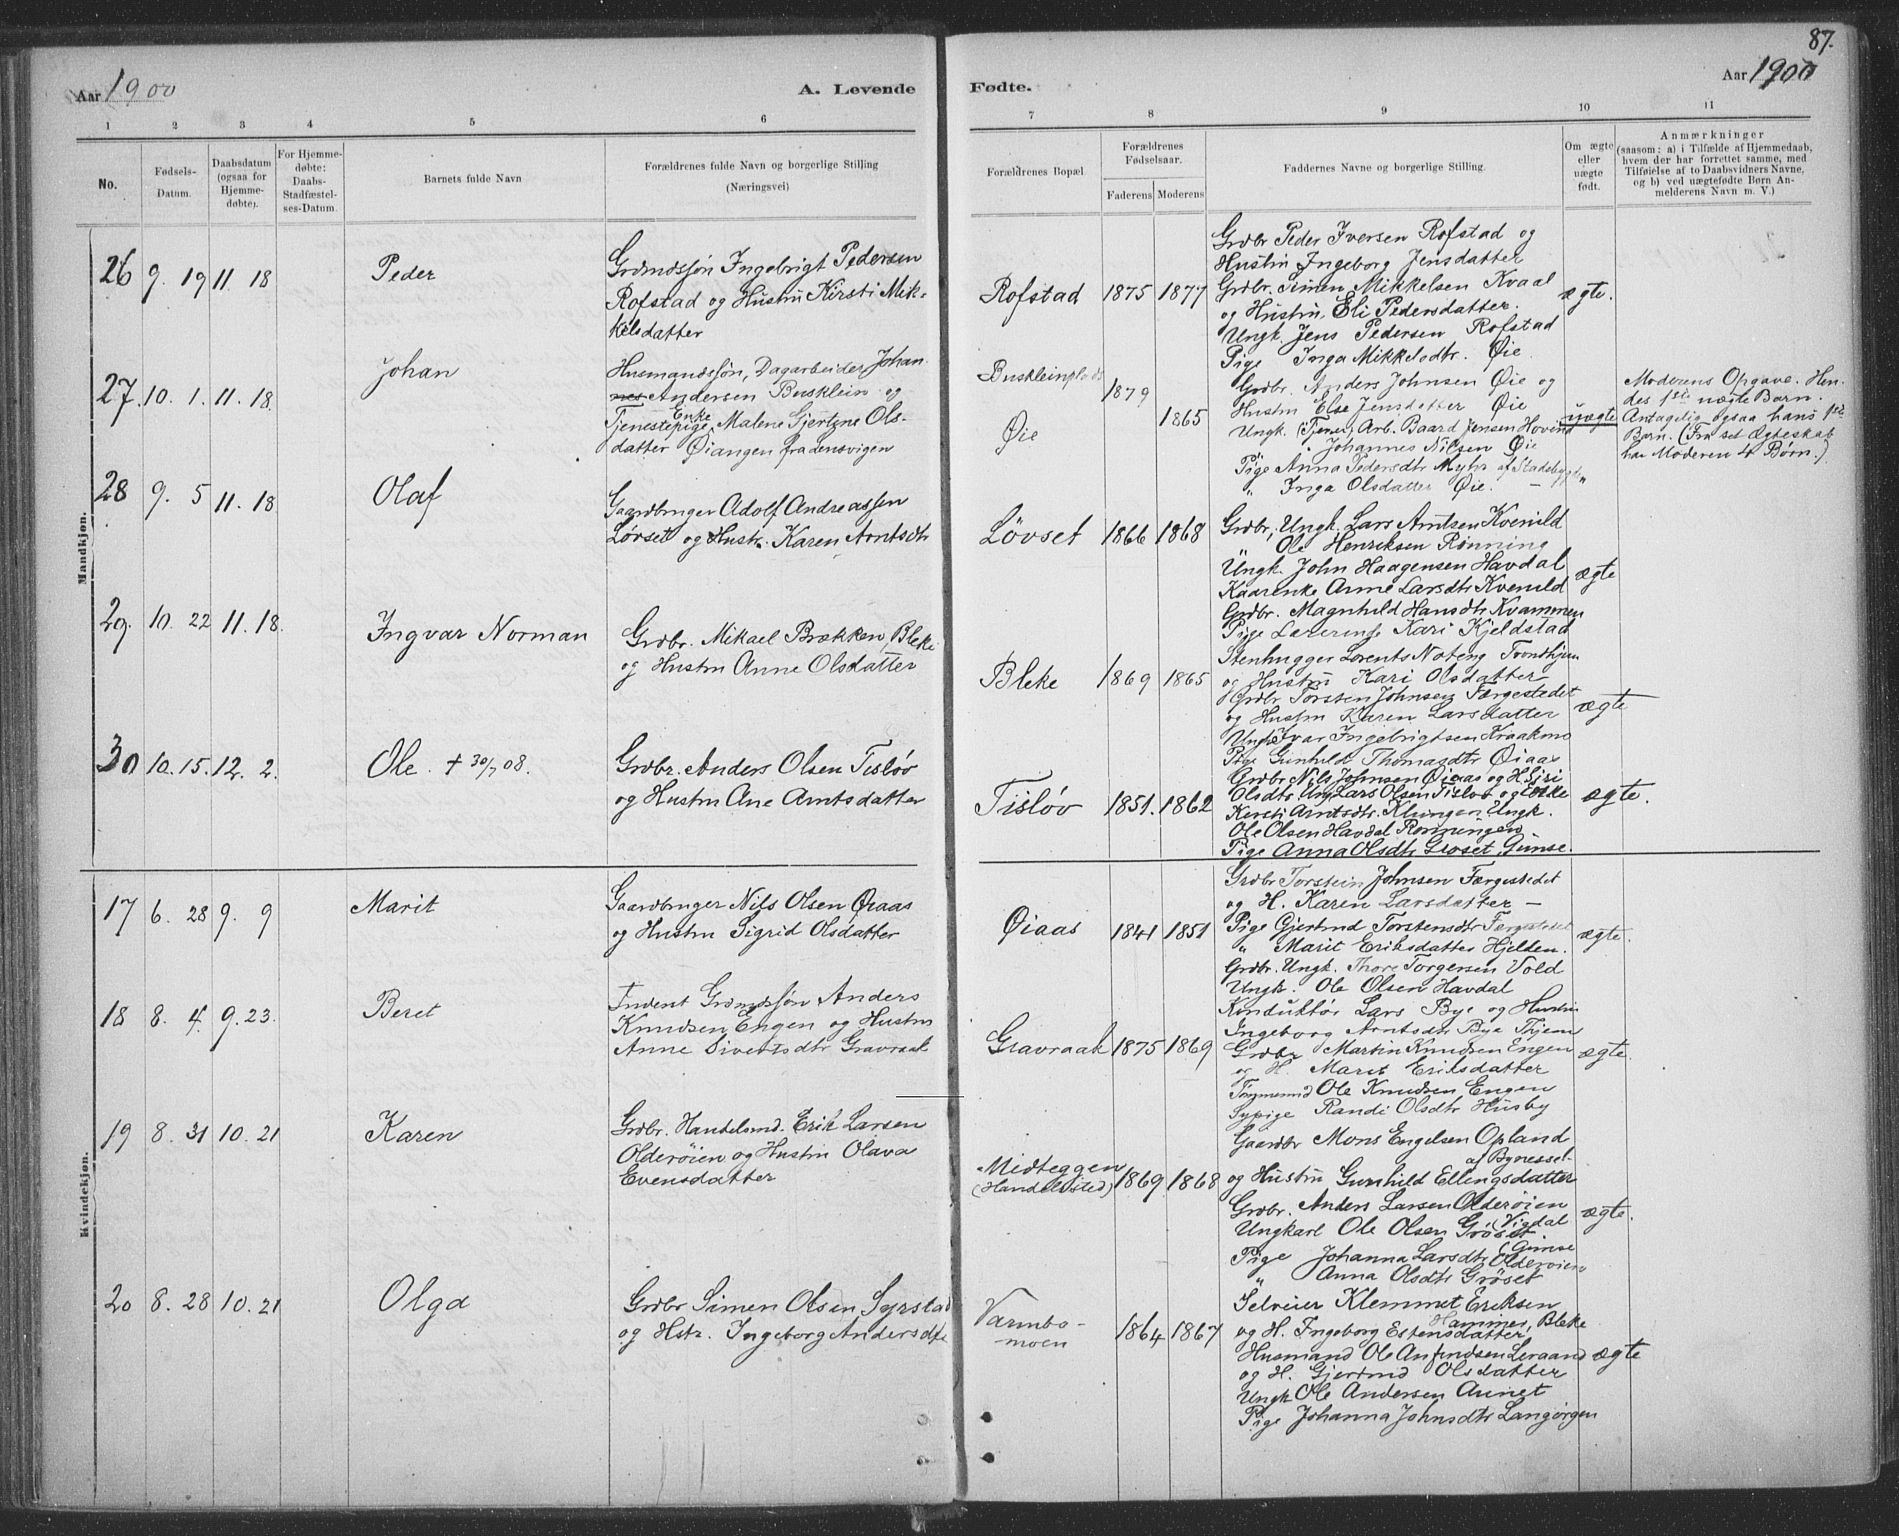 87.
Aar 1900
A. Levende
Fødte.
Aar 1900
1 2 3 4 5 6
7 8 9 10 11
No.
Fødsels-
Datum.
Daabsdatum
(ogsaa for
Hjemme-
døbte).
For Hjemme-
døbte:
Daabs-
Stadfæstel-
ses-Datum.
Barnets fulde Navn
Forældrenes fulde Navn og borgerlige Stilling
(Næringsvei)
Forældrenes Bopæl.
Forældrenes
Fødselsaar.
Faderens Moderens
Faddernes Navne og borgerlige Stilling.
Om ægte
eller
uægte
født.
Anmærkninger
(saasom: a) i Tilfælde af Hjemmedaab,
hvem der har forrettet samme, med
Tilføielse af to Daabsvidners Navne,
og b) ved uægtefødte Børn An-
melderens Navn m. V.)
Mandkjøn.
26 9. 19 11. 18 Peder
Grdmdssøn Ingebrigt Pedersen
Rofstad og Hustru Kirsti Mik-
kelsdatter
Rofstad 1875 1877
Grdbr Peder Iversen Rofstad og
Hustru Ingeborg Jensdatter
Grdbr. Simen Mikkelsen Kvaal
og Hustru Eli Pedersdatter.
Ungk. Jens Pedersen Rofstad
Pige Inga Mikkelsdtr. Øie.
ægte.
27. 10. 1. 11. 18. Johan
Husmandssøn, Dagarbeider Johan-
nes Andersen Busklein og
Enke
Tjenestepige, Malene Gjertine Ols-
datter Øiangen fra Lensvigen
Buskleinplads 1879
Øie 1865
Grdbr. Anders Johnsen Øie og
Hustru Else Jensdatter Øie
Ungk. (Tjener) Arb. Baard Jensen Hovind
" Johannes Nilsen Øie
Pige Anna Pedersdtr Myhr af Stadsbygd
" Inga Olsdatter Øie. — "
uægte
Moderens Opgave. Hen-
des 1ste uægte Barn.
Antagelig ogsaa hans 1ste
Barn. (Fra sit Ægteskab
har Moderen 4 Børn.)
28 9. 5 11. 18 Olaf
Gaardbruger Adolf Andreassen
Løvset og Hustr. Karen Arntsdtr
Løvset 1866 1868
Grdbr, Ungk. Lars Arntsen Kvenild
Ole Henriksen Rønning
Ungk. John Haagensen Havdal
Kaarenke Anne Larsdtr Kvenild
Grdbr. Magnhild Hansdtr Kvammen
Pige Lærerinde Kari Kjeldstad
ægte
29. 10. 22 11. 18. Ingvar Norman
Grdbr. Mikael Brækken, Bleke
og Hustru Anne Olsdatter
Bleke 1869 1865
Stenhugger Lorents Noteng Trondhjem
og Hustru Kari Olsdatter
Grdbr Torsten Johnsen Færgestedet
og Hustru Karen Larsdatter
Ungk Ivar Ingebrigtsen Kraakmo
Pige Gunhild Thomasdtr Øiaas
ægte
30 10. 15. 12. 2. Ole. + 30/7 08.
Grdbr. Anders Olsen Tisløv
og Hustru Ane Arntsdatter
Tisløv 1851. 1862
Grdbr Nils Johnsen Øiaas og H. Siri
Olsdtr. Ung Lars Olsen Tisløv og Enke
Kersti Arntsdtr. Klungen, Ungk.
Ole Olsen Havdal Rønningen
Pige Anna Olsdtr Grøset, Gunse.
ægte.
Kvindekjøn.
17 6. 28 9. 9 Marit
Gaardbruger Nils Olsen Øiaas
og Hustru Sigrid Olsdatter
Øiaas 1841 1851
Grdbr Torstein Johnsen Færgestedet
og H. Karen Larsdatter —
Pige Gjertrud Torstensdtr Færgestedet
" Marit Eriksdatter Hjelten.
Grdbr. Ungk. Thore Torgersen Vold
Ungk. Ole Olsen Havdal
ægte.
18 8. 4. 9. 23. Beret
Indent Grdmdssøn Anders
Knudsen Engen og Hustru
Anne Sivertsdtr Gravraak
Gravraak 1875 1869
Konduktør Lars Bye og Hustru
Ingeborg Arntsdtr Bye Thjem
Grdbr Martin Knudsen Engen
og H. Marit Eriksdatter
Tømmermd Ole Knudsen Engen
Sypige Randi Olsdtr Husby
ægte.
19 8. 31 10. 21 Karen
Grdbr. Handelsmd. Erik Larsen
Olderøien og Hustru Olava
Evensdatter
Midteggen
(Handelssted) 1869 1868
Gaardbr Mons Engelsen Opland
af Bynesset
og Hustru Gunhild Ellingsdatter
Grdbr. Anders Larsen Olderøien
Ungkarl Ole Olsen Grøset (Vigdal
Pige Johanna Larsdtr Olderøien
(Gunse
" Anna Olsdtr Grøset
ægte.
20 8. 28 10. 21 Olga
Grdbr Simen Olsen Syrstad
og Hstr. Ingeborg Andersdtr
Varmbo-
moen 1864 1867
Selveier Klemmet Eriksen
Hammer, Bleke
og H. Ingeborg Estensdatter
Husmand Ole Anfindsen Leraand
og H. Gjertrud Olsdatter
Ungk Ole Andersen Aunet
Pige Johanna Johnsdtr Langørgen
ægte